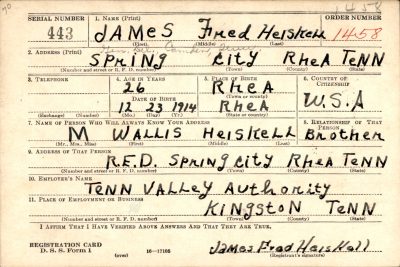 1458
SERIAL NUMBER 1. NAME (Print) ORDER NUMBER
443 JAMES Fred Heiskell 1458
(First) (Middle) (Last)
2. ADDRESS (Print)
SPRING CITY RHEA TENN
(Number and street or R. F. D. number) (Town) (County) (State)
3. TELEPHONE 4. AGE IN YEARS 5. PLACE OF BIRTH 6. COUNTRY OF CITIZENSHIP
26 RheA
DATE OF BIRTH (Town or county)
12-23 1914 RheA U.S.A
(Exchange) (Number) (Mo.) (Day) (Yr.) (State or country)
7. NAME OF PERSON WHO WILL ALWAYS KNOW YOUR ADDRESS 8. RELATIONSHIP OF THAT PERSON
M WALLIS HeisKell Brother
(Mr., Mrs., Miss) (First) (Middle) (Last)
9. ADDRESS OF THAT PERSON
R.F.D. SPRING CITY RHEA TENN
(Number and street or R. F. D. number) (Town) (County) (State)
10. EMPLOYER'S NAME
TENN VALLEY AuthoRiTY
11. PLACE OF EMPLOYMENT OR BUSINESS
KINGSTON TeNN
(Number and street or R. F. D. number) (Town) (County) (State)
I AFFIRM THAT I HAVE VERIFIED ABOVE ANSWERS AND THAT THEY ARE TRUE.
REGISTRATION CARD
D. S. S. Form 1 (over) 16—17105 James Fred Heiskell
(Registrant's signature)